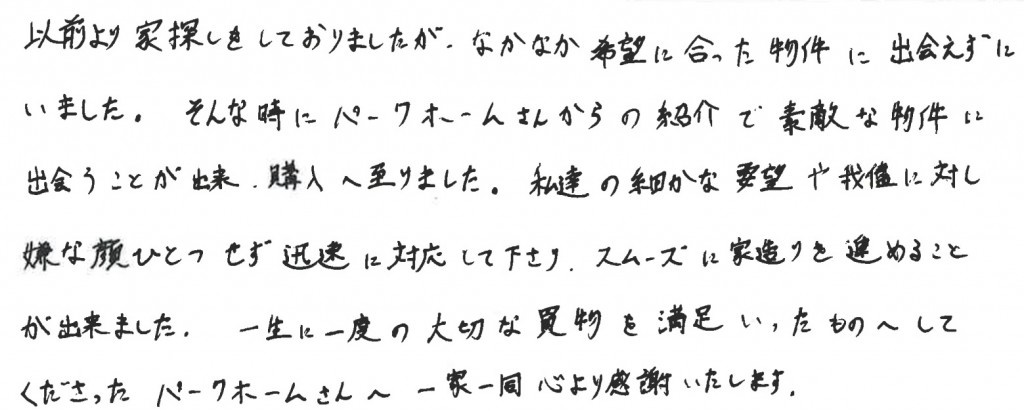 以前より家探しをしておりましたが、なかなか希望に合った物件に出会えずに
いました。そんな時にパークホームさんからの紹介で素敵な物件に
出会うことが出来、購入へ至りました。私達の細かな要望や我儘に対し
嫌な顔ひとつせず迅速に対応して下さり、スムーズに家造りを進めること
が出来ました。一生に一度の大切な買物を満足いったものへして
くださったパークホームさんへ一家一同心より感謝いたします。